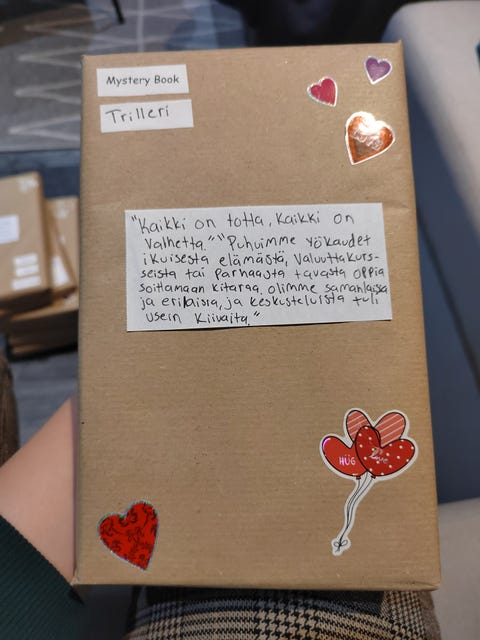 Mystery Book
Trilleri
"Kaikki on totta, kaikki on
valhetta." "Puhuimme yökaudet
ikuisesta elämästä, valuuttakurs-
seista tai parhaasta tavasta oppia
soittamaan kitaraa. olimme samanlaisia
ja erilaisia, ja keskusteluista tuli
usein kiivaita."
HUG
Love